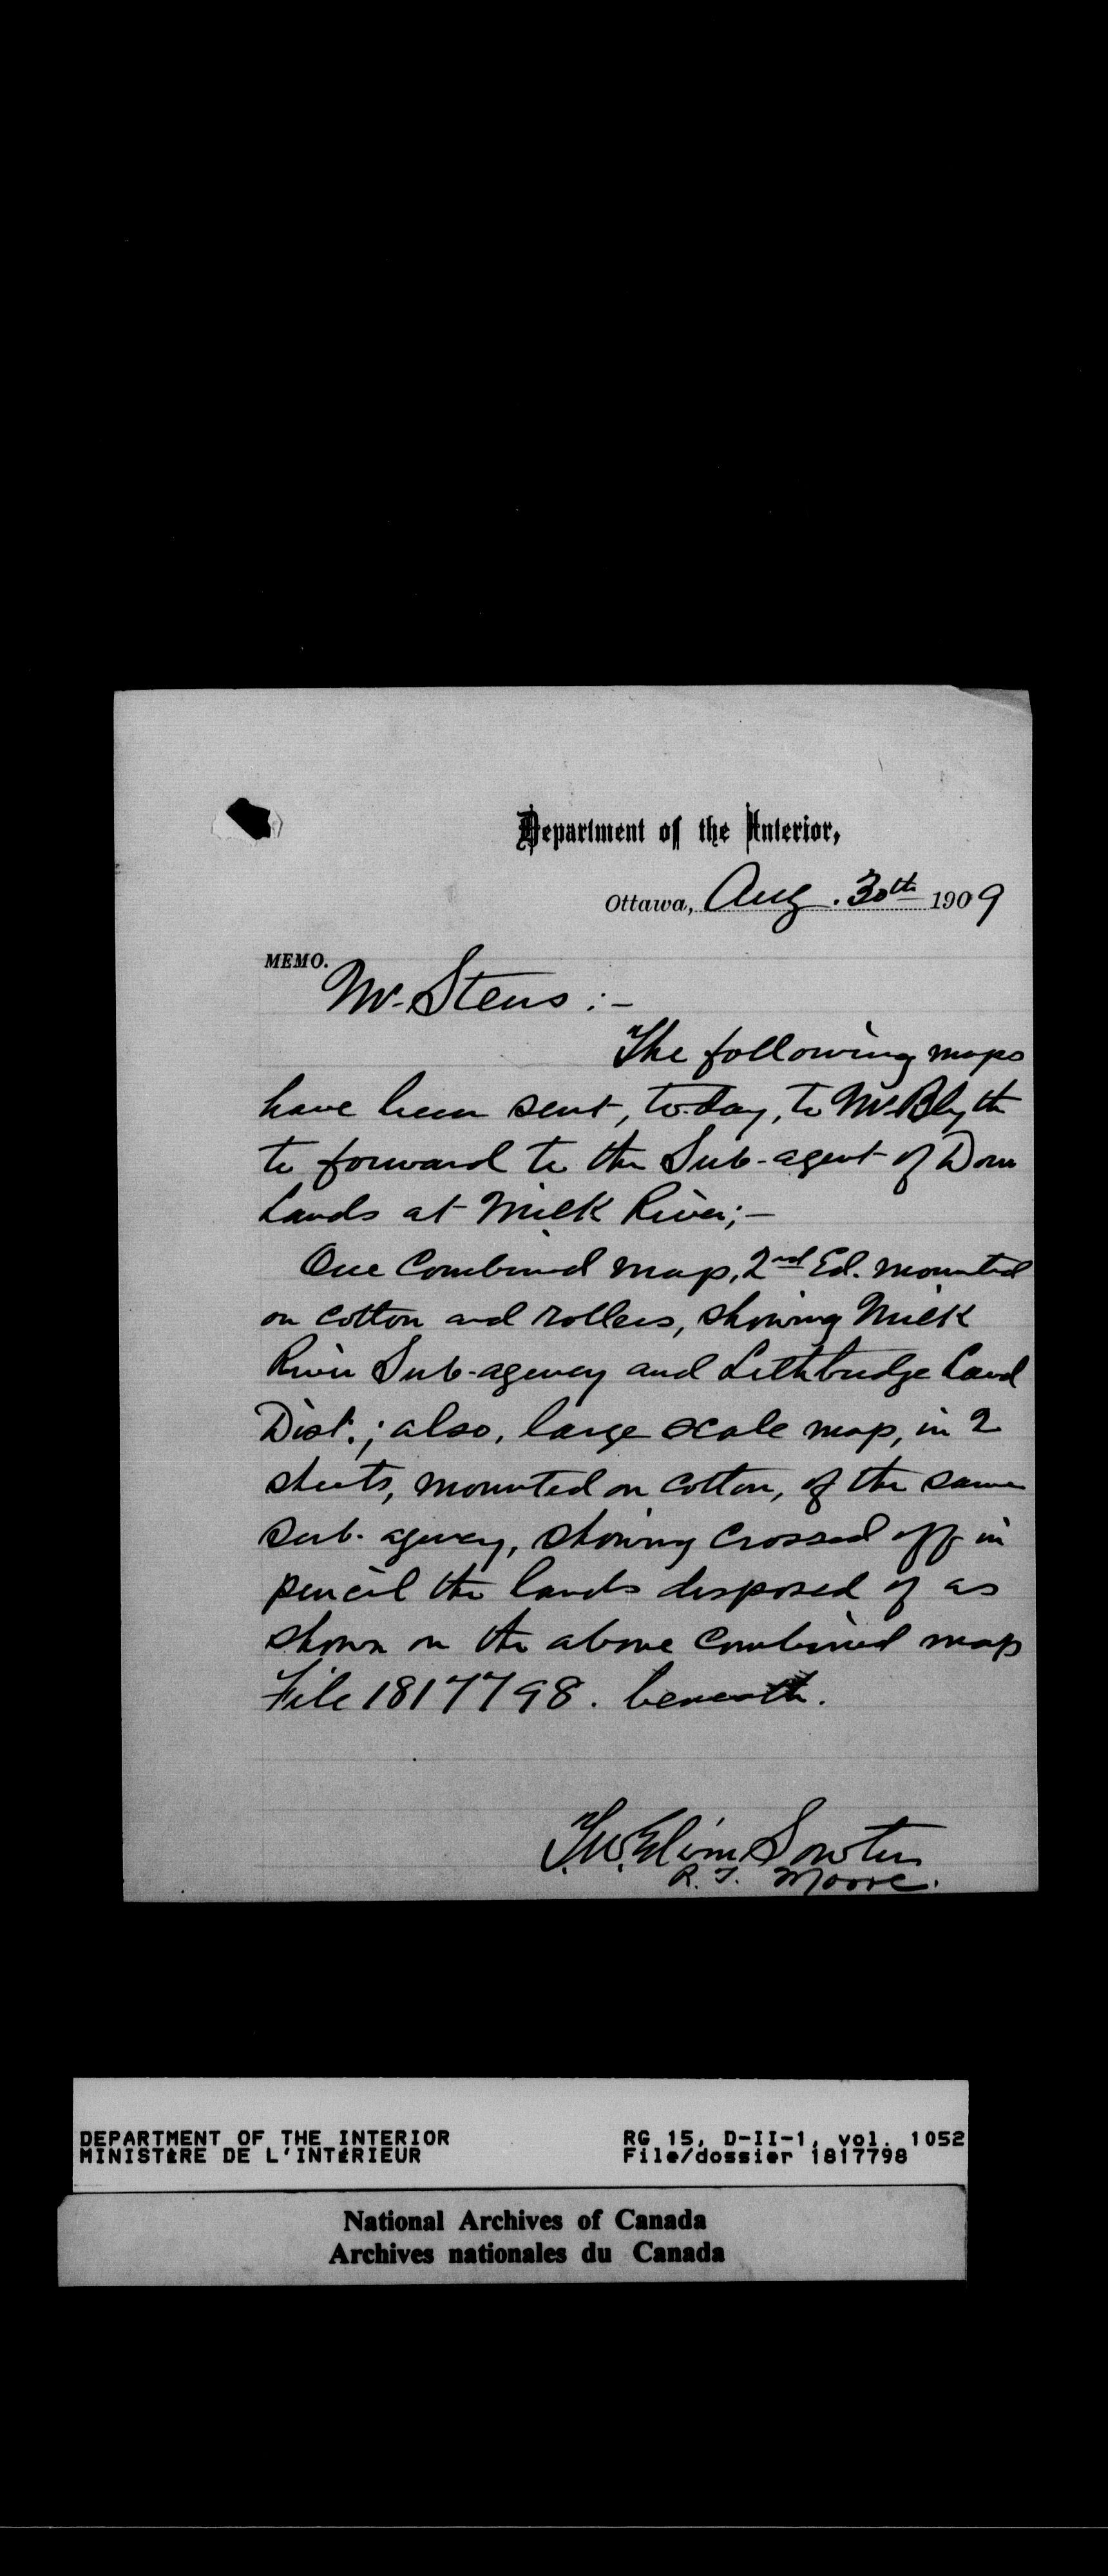 Department of the Interior,
Ottawa, Aug. 30th 1909
MEMO.
Mr. Steus :-
The following maps
have been sent, to-day, to Mr. Blyth
to forward to the Sub-agent of Dom
Lands at Milk River;-
One Combined map, 2nd Ed. mounted
on cotton and rollers, showing Milk
River Sub-agency and Lethbridge Land
Dist.; also, large scale map, in 2
sheets, mounted on cotton, of the same
sub-agency, showing crossed off in
pencil the lands disposed of as
shown on the above combined map
File 1817798. beneath.
T.W. Edwin Sowter
R. T. Moore.
DEPARTMENT OF THE INTERIOR
MINISTÈRE DE L'INTÉRIEUR
RG 15, D-II-1, vol. 1052
File/dossier 1817798
National Archives of Canada
Archives nationales du Canada